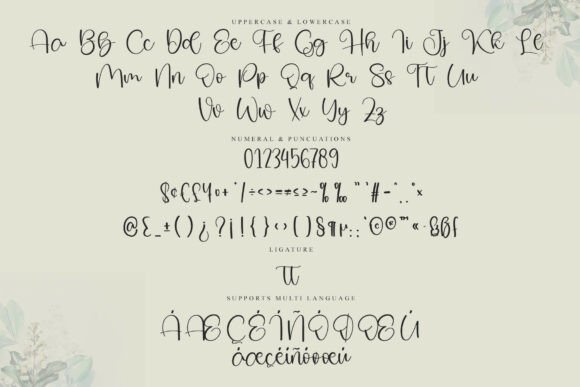 UPPERCASE & LOWERCASE
Aa Bb Cc Dd Ee Ff Gg Hh Ii Jj Kk Le
Mm Nn Oo Pp Qq Rr Ss Tt Uu
Vv Ww Xx Yy Zz
NUMERAL & PUNCUATIONS
0123456789
$¢£¥¤+°/÷<>=≠≤≥~%‰"'#-
@&_±()¿?¡!{}‹›()§¶µ::©®™«
LIGATURE
tt
SUPPORTS MULTI LANGUAGE
ÁÆÇÉÍÑÓØŒÚ
áæçéíñóøœú